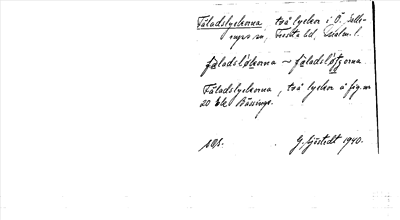 Fäladslyckorna, två lyckor i Ö. Salle-
rups sn, Frosta hd. Malm. l.
fäladsløkorna ~ fäladsløtjorna
Fäladslyckorna, två lyckor å fig. nr
20 Elle Bässinge.
G. Sjöstedt 1940.